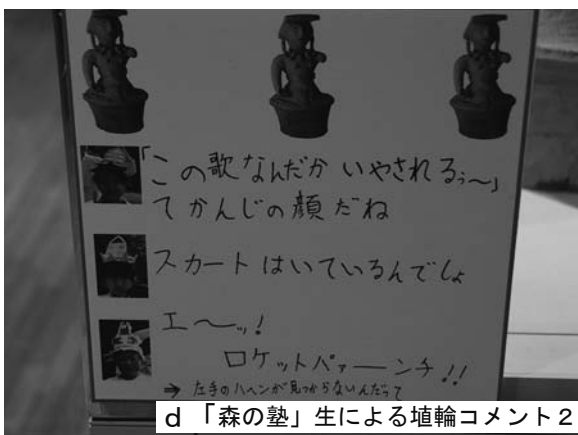 「この歌なんだか いやされるぅ〜」
てかんじの顔だね
スカートはいているんでしょ
エ〜ッ!
ロケットパァーンチ!!
➔ 左手のハヘンが見つからないんだって
d 「森の塾」生による埴輪コメント2